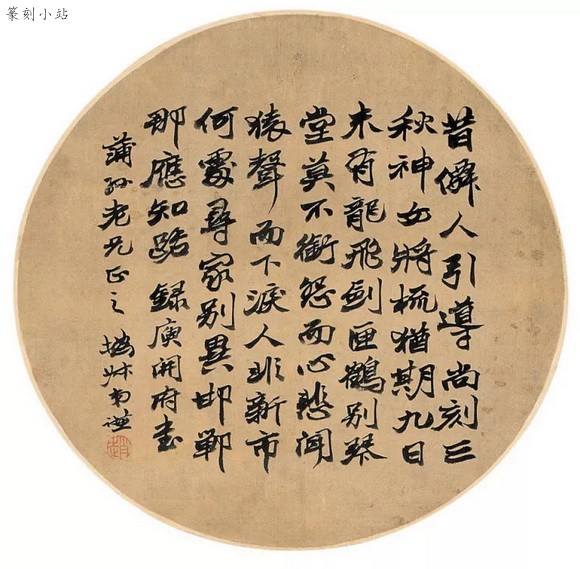 篆刻小站
昔僊人引導尚刻三
秋神女將梳猶期九日
未有龍飛劍匣鶴別琴
臺莫不銜怨而心悲聞
猿聲而下淚人非新市
何處尋家別異邯鄲
那應知路 錄庾開府書
蒲孫老兄正之 撝叔弟謙